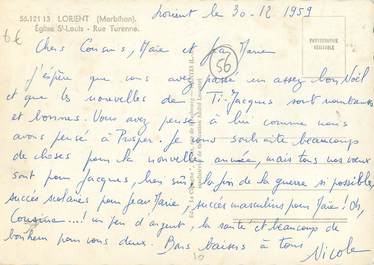 56.121 13 LORIENT (Morbihan).
Église St-Louis - Rue Turenne.
Lorient le 30-12 1959
6€
PHOTOGRAPHIE VÉRITABLE
56
Chers Cousins, Marie et Jean Marie
J'espère que vous avez passé un assez bon Noël
et que les nouvelles de Ti-Jacques sont nombreuses
et bonnes. Vous avez pensé à lui comme nous
avons pensé à Prosper. Je vous souhaite beaucoup
de choses pour la nouvelle année, mais tous nos vœux
sont pour Jacques, bien sûr la fin de la guerre si possible,
succès scolaires pour Jean Marie, succès masculins pour Marie ! Oh,
Cousine...! un peu d'argent, la santé et beaucoup de
bonheur pour vous deux. Bons baisers à tous
Nicole